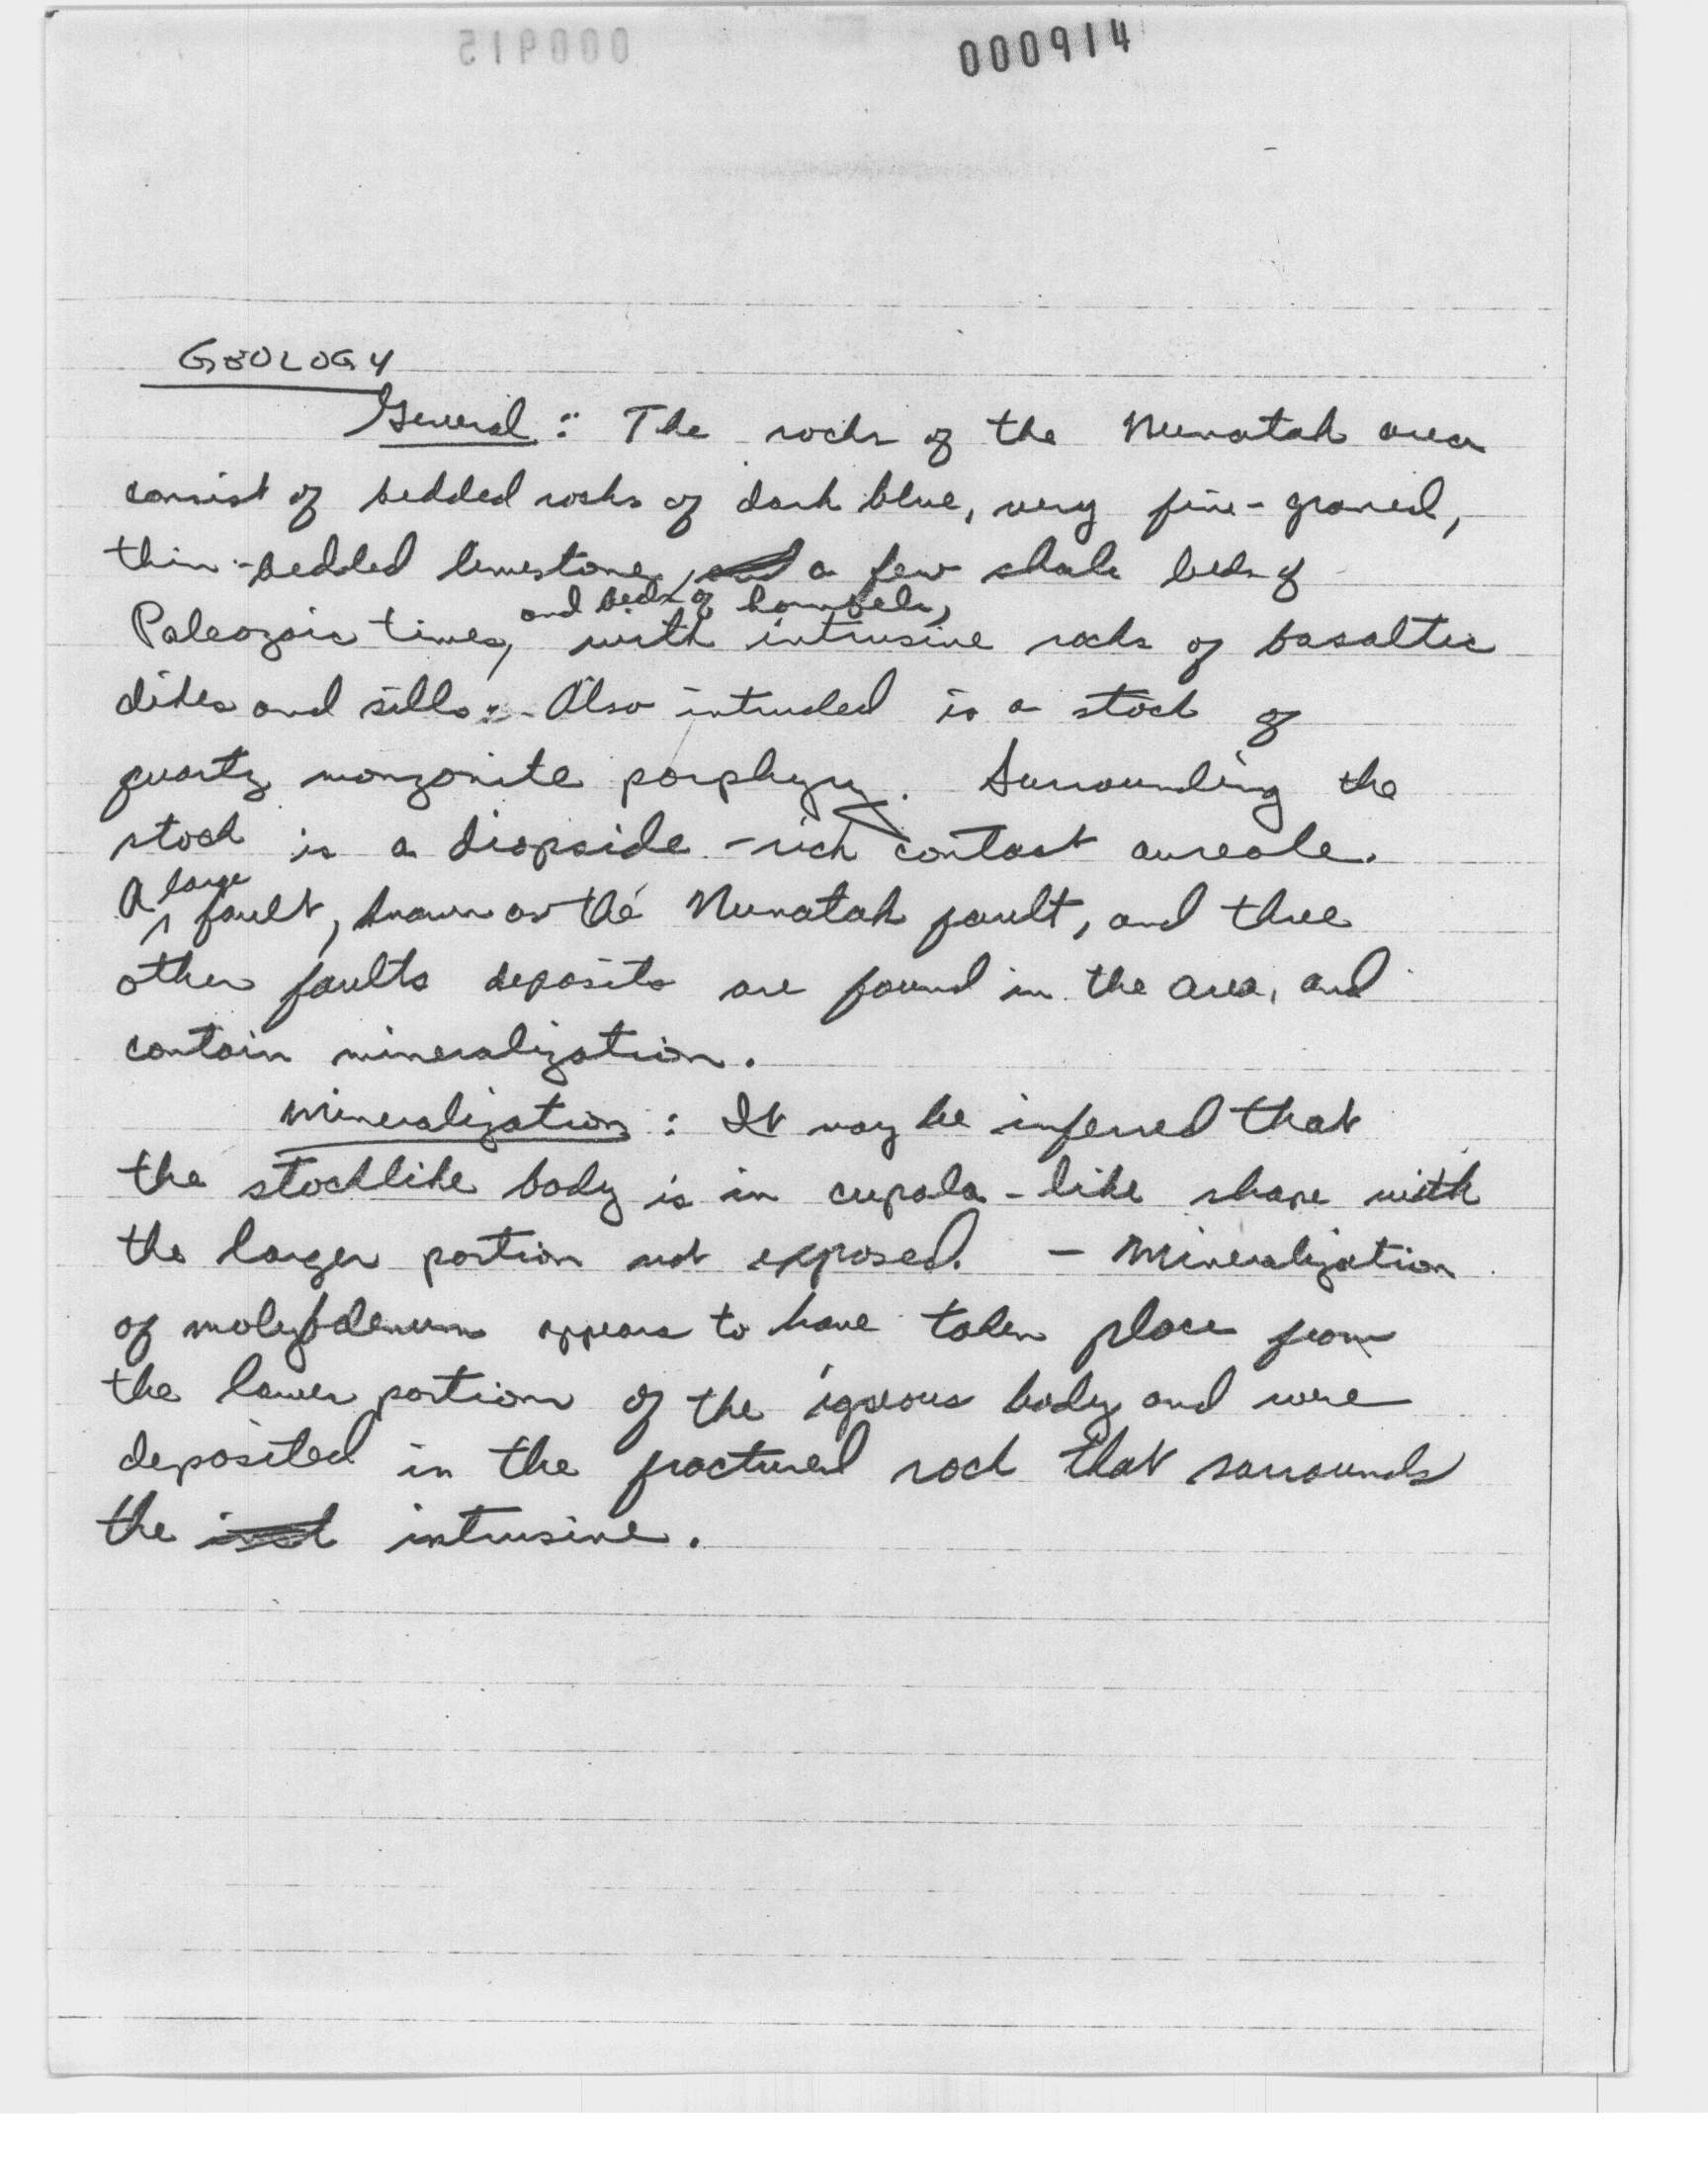 000914
GEOLOGY
General: The rocks of the Nunatak area
consist of bedded rocks of dark blue, very fine-grained,
thin-bedded limestone, a few shale beds of
and beds of hornfels,
Paleozoic times, with intrusive rocks of basaltic
dikes and sills. Also intruded is a stock of
quartz monzonite porphyry. Surrounding the
stock is a diopside-rich contact aureole.
A large fault, known as the Nunatak fault, and three
other faults deposits are found in the area, and
contain mineralization.
Mineralization: It may be inferred that
the stocklike body is in cupola-like shape with
the larger portion not exposed. - Mineralization
of molybdenum appears to have taken place from
the lower portion of the igneous body and were
deposited in the fractured rock that surrounds
the intrusive.